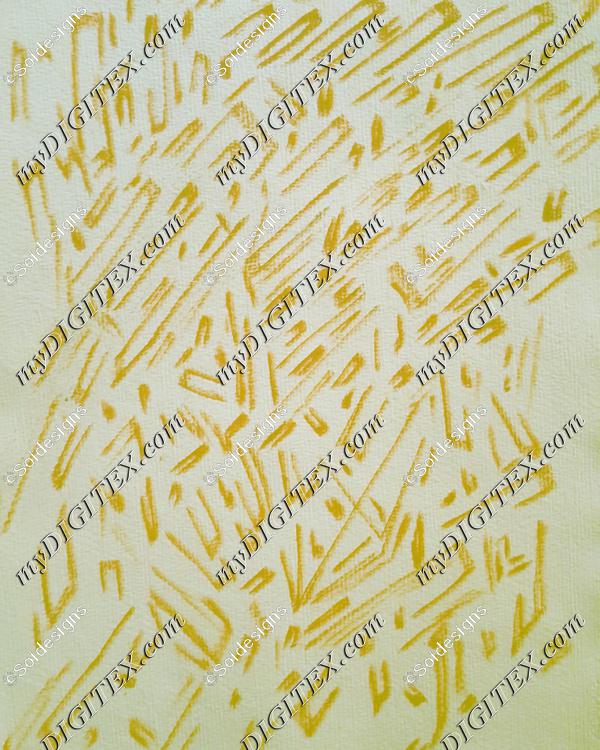 ©Soldesigns myDIGITEX.com ©Soldesigns myDIGITEX.com ©Soldesigns myDIGITEX.com
©Soldesigns myDIGITEX.com ©Soldesigns myDIGITEX.com ©Soldesigns myDIGITEX.com
©Soldesigns myDIGITEX.com ©Soldesigns myDIGITEX.com ©Soldesigns myDIGITEX.com
©Soldesigns myDIGITEX.com ©Soldesigns myDIGITEX.com ©Soldesigns myDIGITEX.com